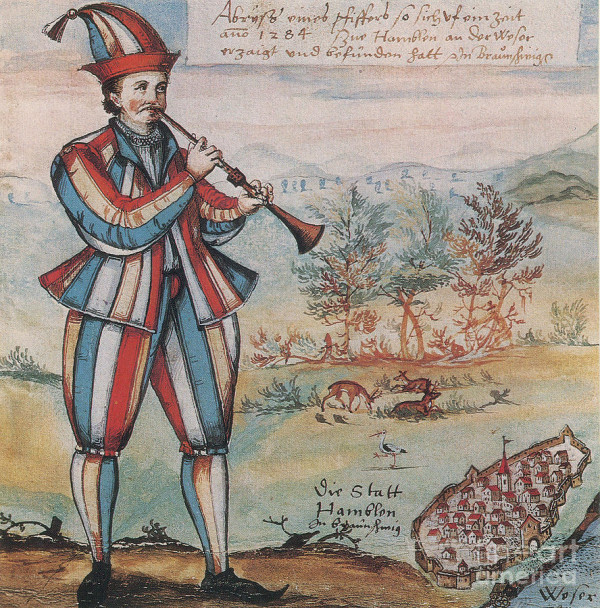 Abryss eines pfiffers so sich vf ein Zeit
año 1284 Zue Hamblen an der Weser
erzaigt und befunden hatt in Braunschwig
Die Statt
Hamblen
in braunschwig
Weser
fineart
america